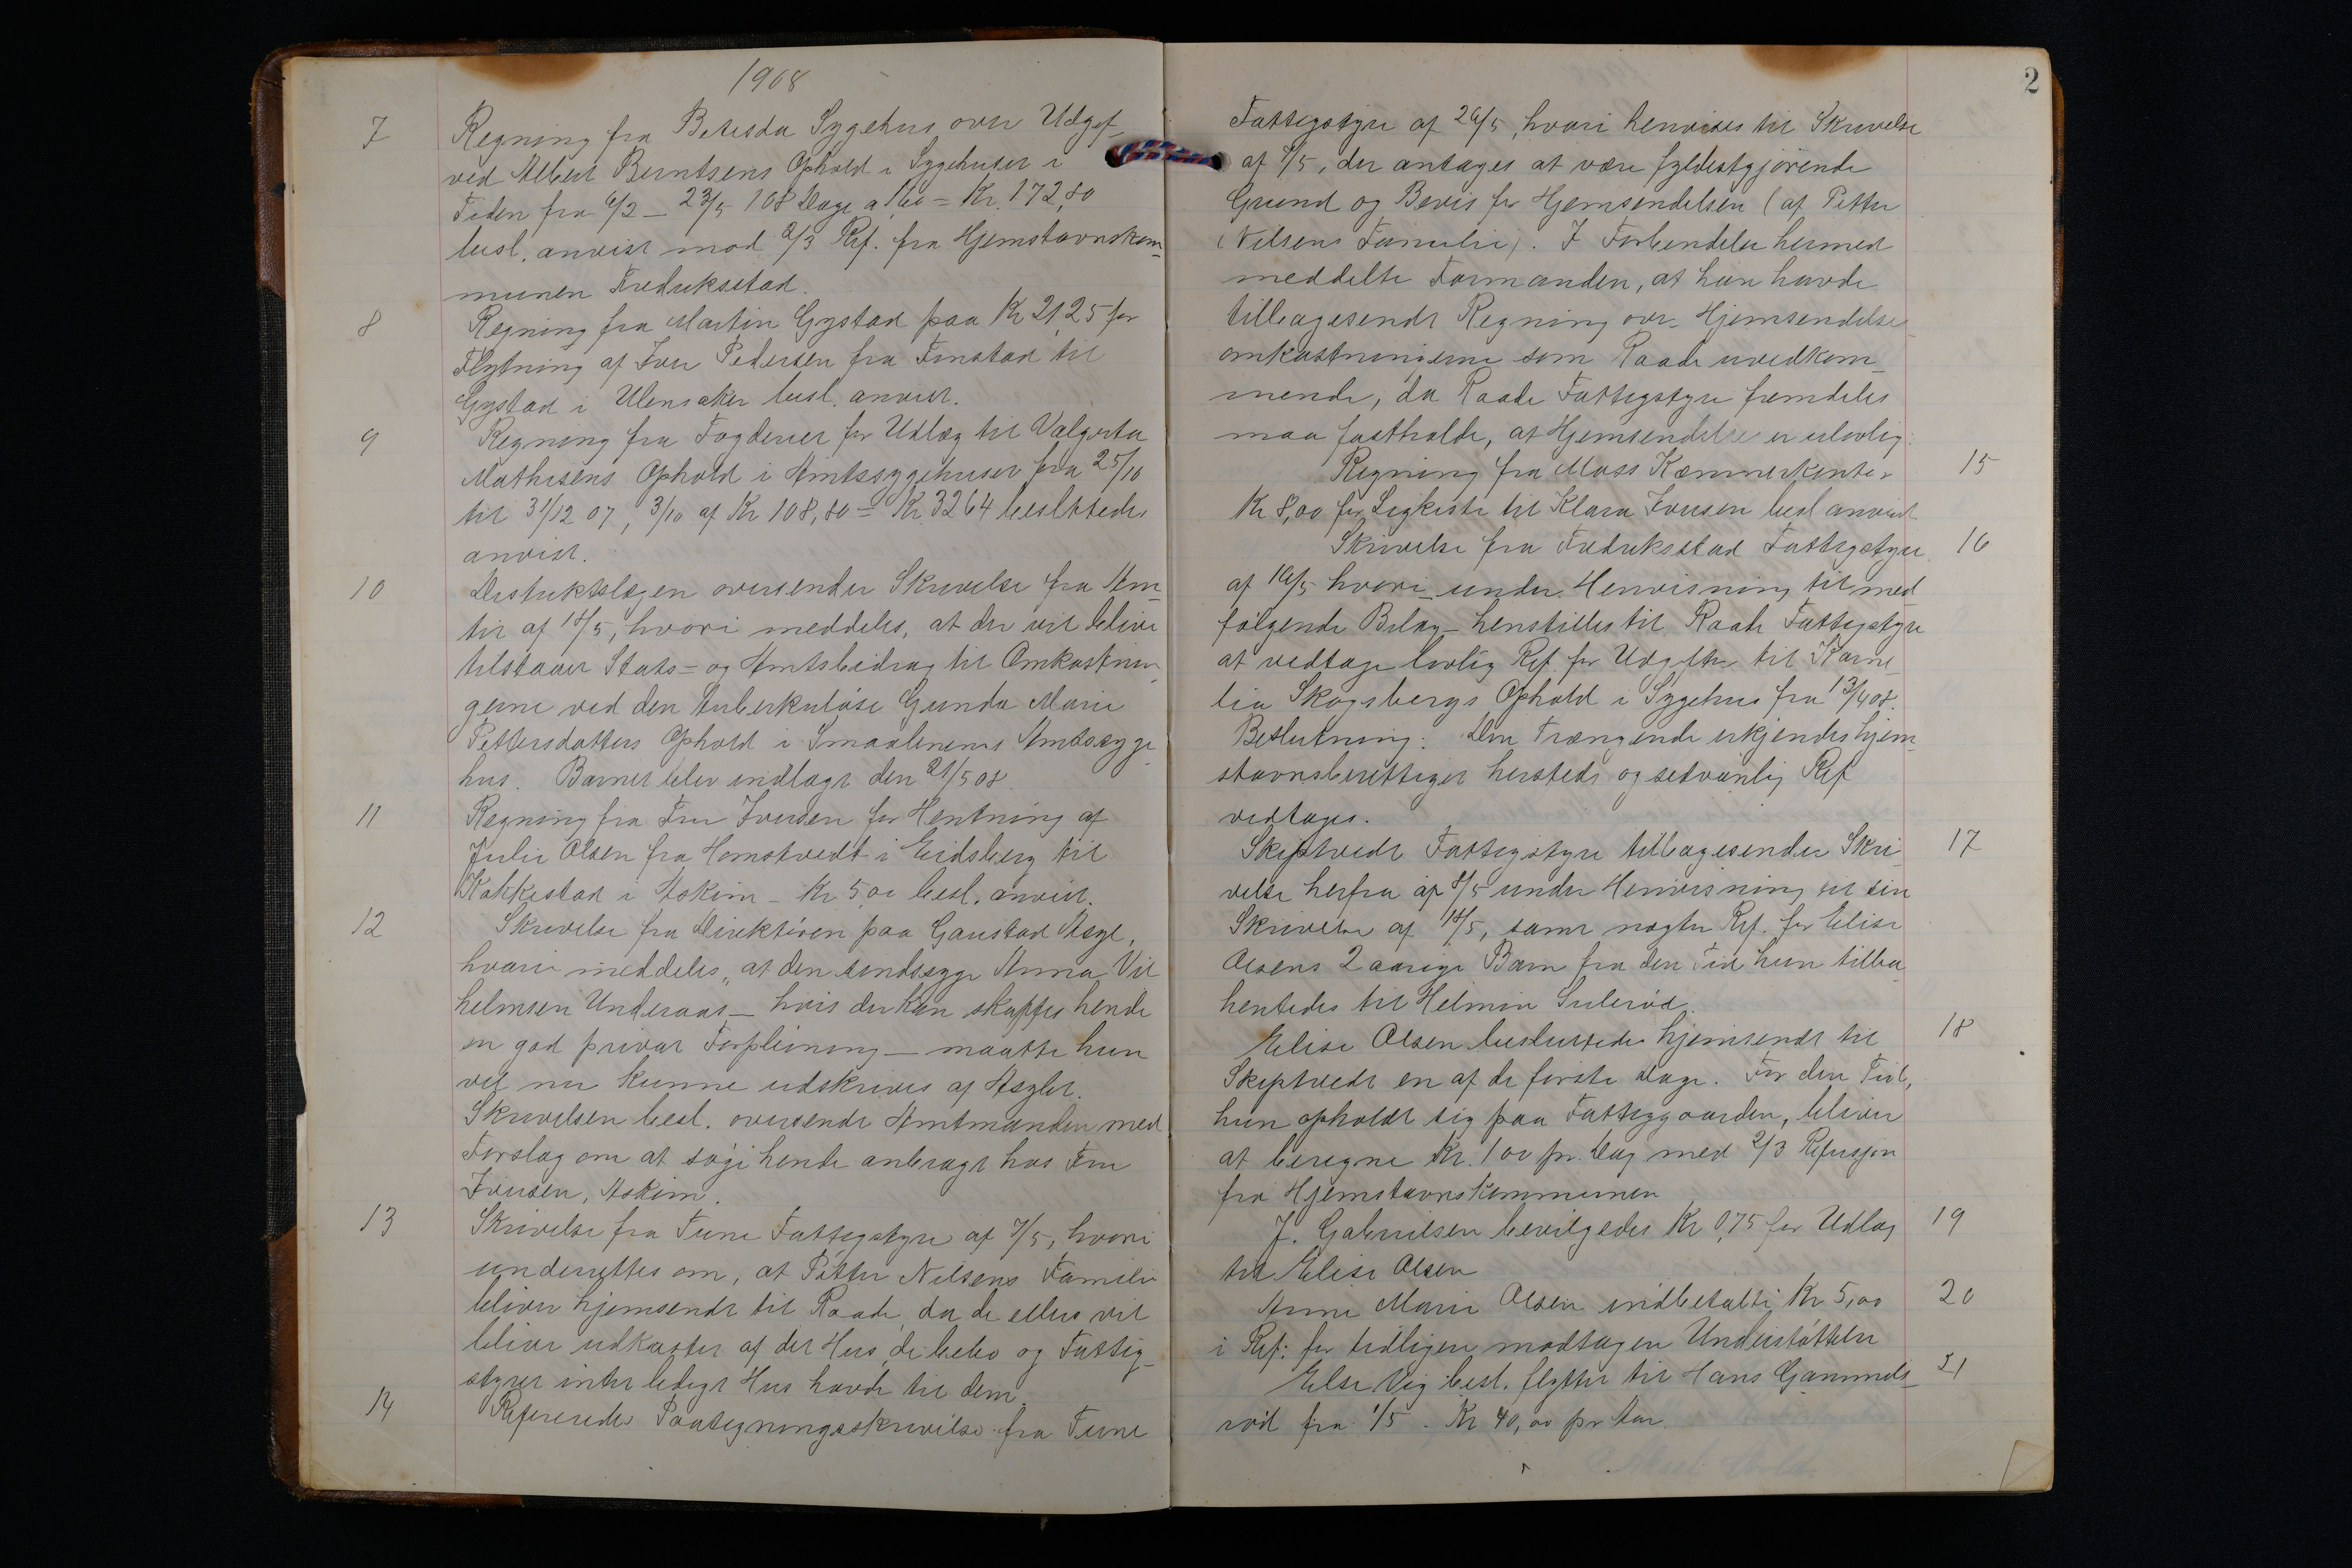 1908
7 Regning fra Betesda Sygehus over Udgif-
ved Albert Berntsens Ophold i Sygehuset i
Tiden fra 6/2 - 23/5 108 Dage a 1,60 = Kr. 172,80
besl. anvist mod 2/3 Ref. fra Hjemstavnskom-
munen Fredriksstad.
8 Regning fra Martin Gystad paa Kr 21,25 for
Flytning af Iver Pedersen fra Finstad til
Gystad i Ulensaker besl. anvist.
9 Regning fra Fogderiet for Udlæg til Valgerta
Mathisens Ophold i Amtssygehuset fra 25/10
til 31/12 07, 3/10 af Kr 108,80 = Kr. 32 64 besluttedes
anvist.
10 Distriktslægen oversender Skrivelse fra Am-
tet af 18/5, hvori meddeles, at der vil blive
tilstaaet Stats- og Amtsbidrag til Omkostnin-
gerne ved den tuberkuløse Gunda Marie
Pettersdatters Ophold i Smaalenenes Amtssyge-
hus. Barnet blev indlagt den 21/5 08.
11 Regning fra Fru Iversen for Hentning af
Julie Olsen fra Homstvedt i Eidsberg til
Kakkestad i Askim - Kr 5,00 besl. anvist.
12 Skrivelse fra Direktøren paa Gaustad Asyl,
hvori meddeles, at den sindssyge Anna Vil
helmsen Underaas - hvis der kan skaffes hende
en god privat Forpleining - maatte hun
vel nu kunne udskrives af Asylet.
Skrivelsen besl. oversendt Amtmanden med
Forslag om at søge hende anbragt hos Fru
Iversen, Askim.
13 Skrivelse fra Tune Fattigstyre af 7/5, hvori
underrettes om, at Petter Nilsens Familie
bliver hjemsendt til Raade, da de ellers vil
blive udkastet af det Hus, de bebo og Fattig-
styret intet ledigt Hus havde til dem.
14 Refereredes Paategningsskrivelse fra Tune
2
Fattigstyre af 26/5, hvori henvises til Skrivelse
af 7/5, der antages at være fyldestgjørende
Grund og Bevis for Hjemsendelsen (af Petter
Nilsens Familie). I Forbindelse hermed
meddelte Formanden, at han havde
tilbagesendt Regning over Hjemsendelses
omkostningerne som Raade uvedkom-
mende, da Raade Fattigstyre fremdeles
maa fastholde, at Hjemsendelse er ulovlig.
Regning fra Moss Kæmnerkontor 15
Kr 8,00 for Ligkiste til Klara Iversen besl anvist
Skrivelse fra Fredriksstad Fattigstyre 16
af 16/5 hvori under Henvisning til med
følgende Bilag henstilles til Raade Fattigstyre
at vedtage lovlig Ref. for Udgifter til Karne
lia Skogsbergs Ophold i Sygehus fra 13/4 08.
Beslutning: Den Trængende erkjendes hjem
stavnsberettiget hersteds og sedvanlig Ref
vedtages.
Skiptvedt Fattigstyre tilbagesender Skri 17
velse herfra af 8/5 under Henvisning til sin
Skrivelse af 18/5, samt nægter Ref. for Elise
Olsens 2 aarige Barn fra den Tid hun tilba
hentedes til Helmin Sulerød.
Elise Olsen besluttedes hjemsendt til 18
Skiptvedt en af de første Dage. For den Tid,
hun opholdt sig paa Fattiggaarden, bliver
at beregne Kr. 1 00 pr. Dag med 2/3 Refusjon
fra Hjemstavnskommunen
J. Gabrielsen bevilgedes Kr 0,75 for Udlæg 19
til Elise Olsen
Anne Marie Olsen indbetalte Kr 5,00 20
i Ref: for tidligere modtagen Understøttelse
Else Vig besl. flyttet til Hans Gammels- 21
rød fra 1/5. Kr 40,00 pr Aar